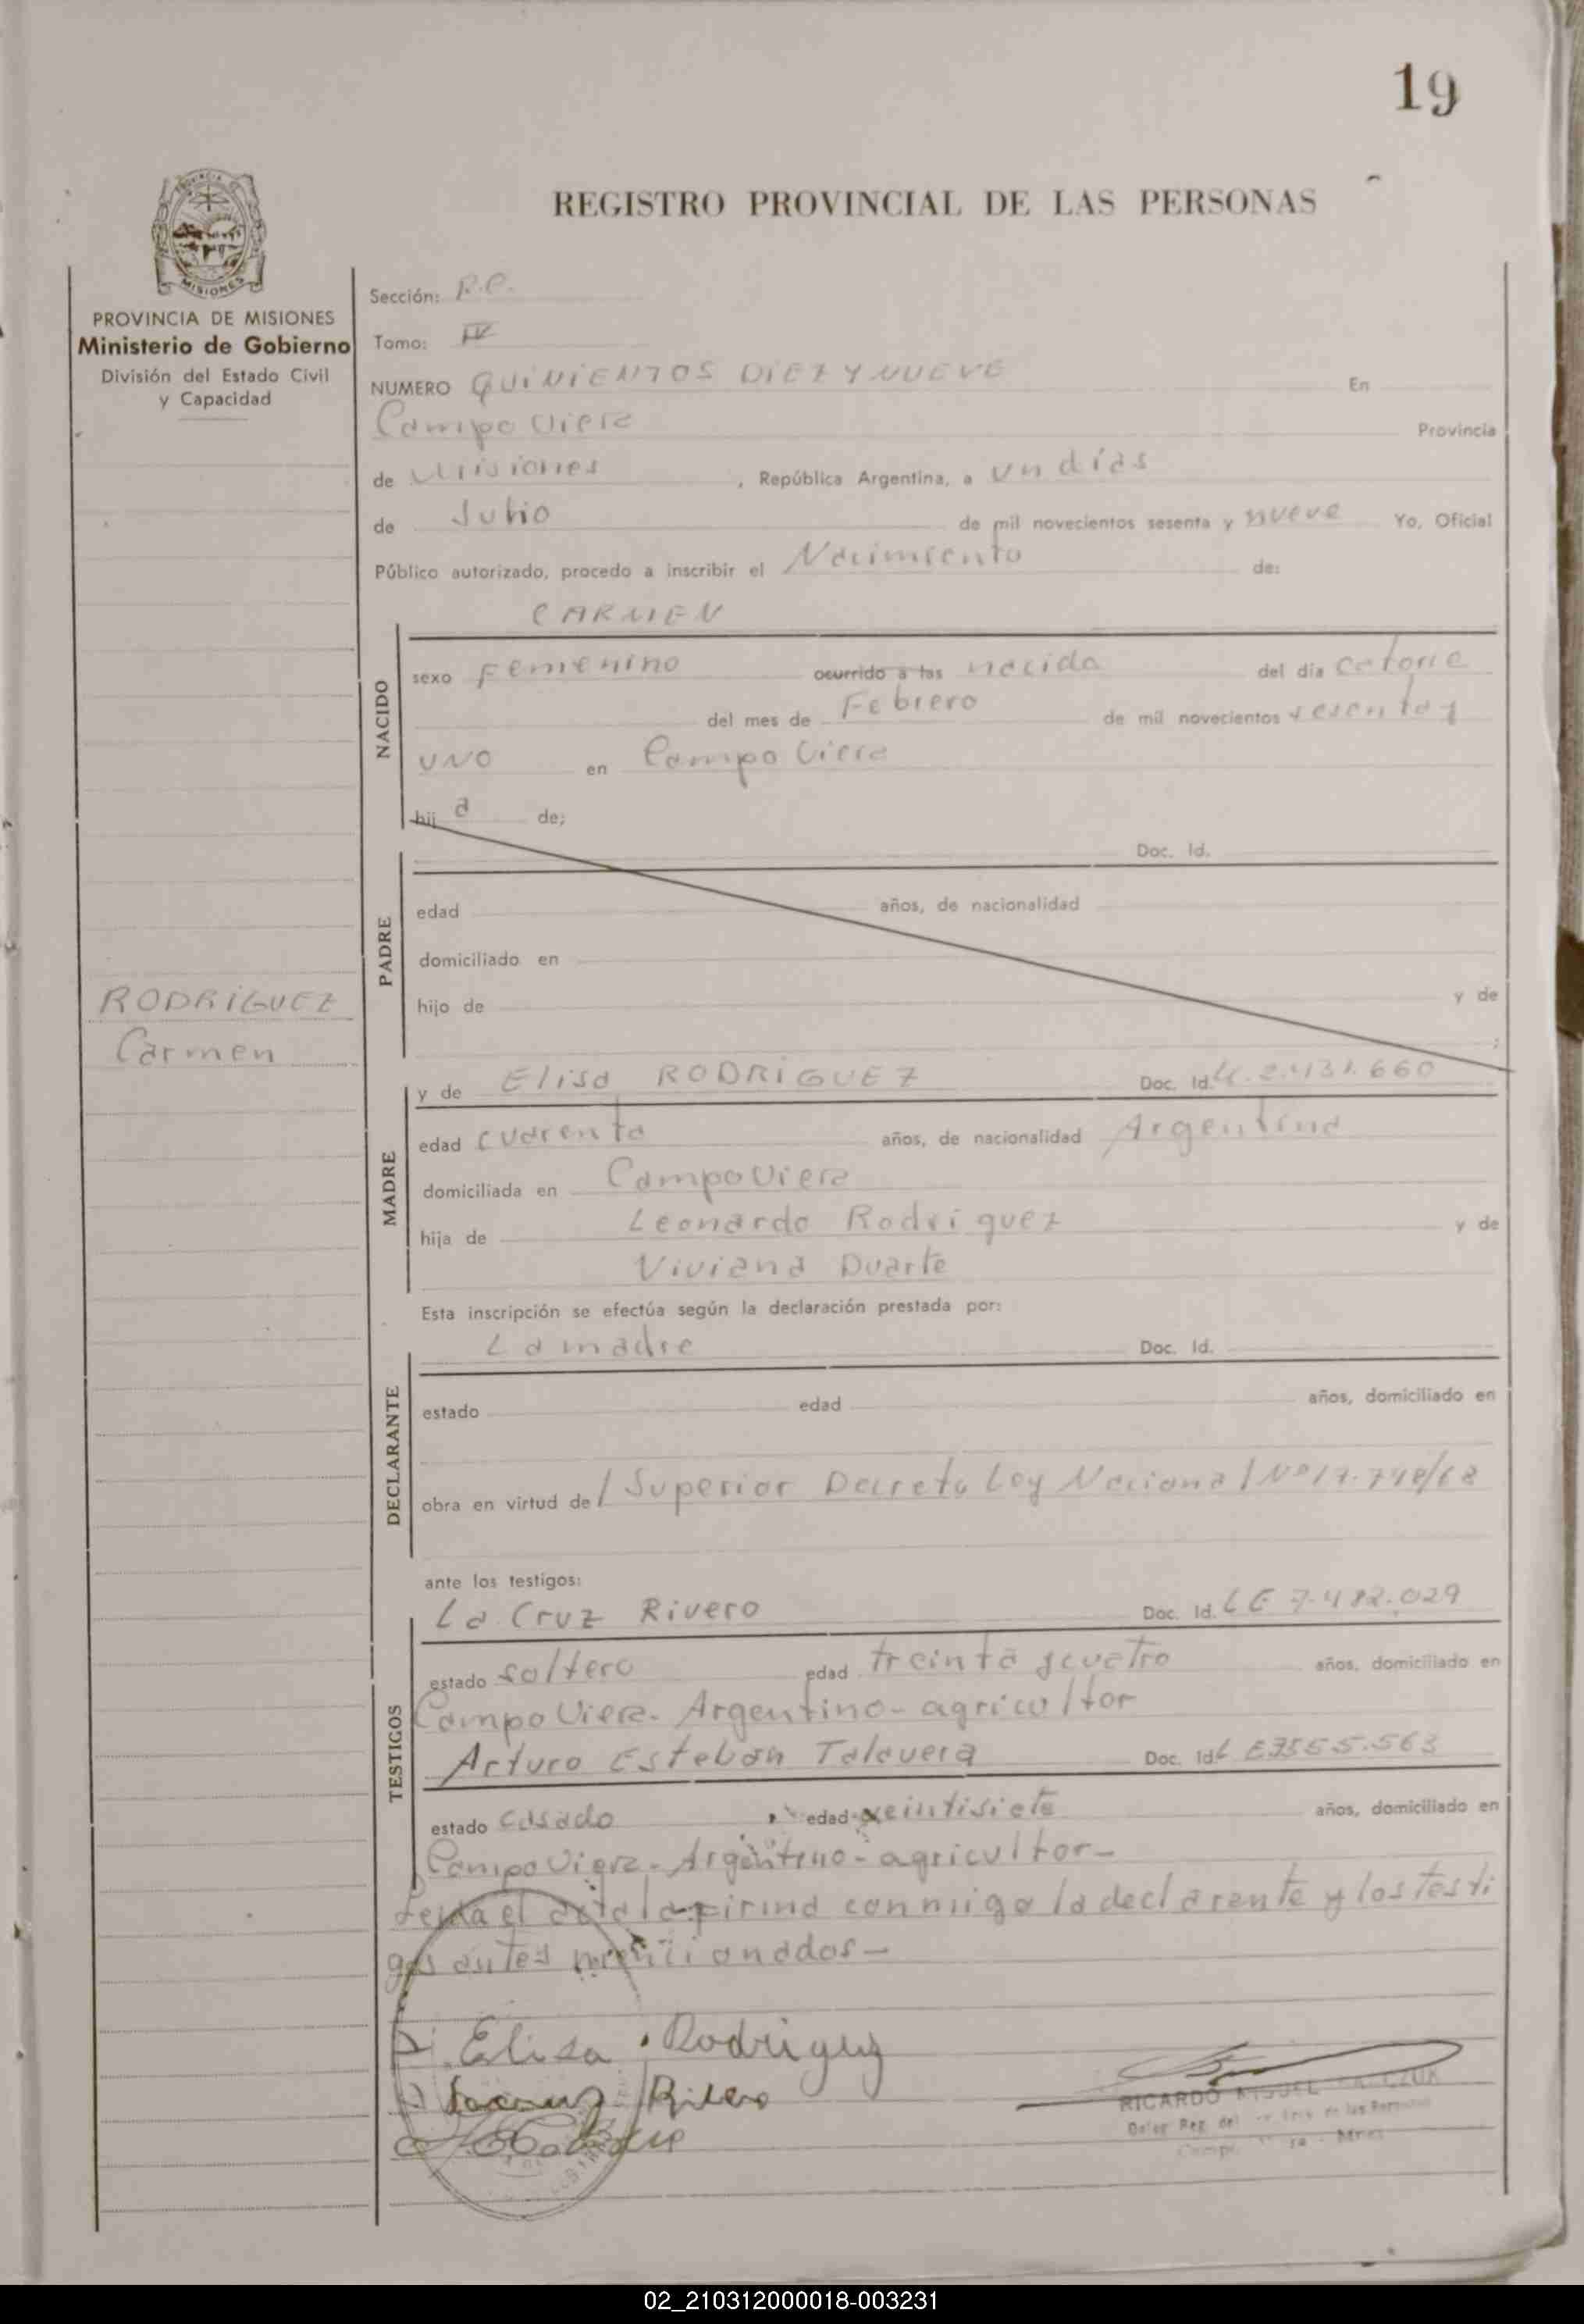 19
REGISTRO PROVINCIAL DE LAS PERSONAS
MISIONES
PROVINCIA DE MISIONES
Ministerio de Gobierno
División del Estado Civil
y Capacidad
Sección: R.C.
Tomo: IV
NUMERO QUINIENTOS DIEZ Y NUEVE En
Campo Viera Provincia
de Misiones, República Argentina, a un días
de Julio de mil novecientos sesenta y nueve Yo, Oficial
Público autorizado, procedo a inscribir el Nacimiento de:
CARMEN
NACIDO
sexo Femenino ocurrido a las nacida del día catorce
del mes de Febrero de mil novecientos sesenta y
UNO en Campo Viera
hij a de;
PADRE
Doc. Id.
edad años, de nacionalidad
domiciliado en
hijo de y de
;
RODRIGUEZ
Carmen
MADRE
y de Elisa RODRIGUEZ Doc. Id. 2.431.660
edad cuarenta años, de nacionalidad Argentina
domiciliada en Campo Viera
hija de Leonardo Rodriguez y de
Viviana Duarte
Esta inscripción se efectúa según la declaración prestada por:
DECLARANTE
La madre Doc. Id.
estado edad años, domiciliado en
obra en virtud de/ Superior Decreto Ley Nacional Nº 17.748/68
ante los testigos:
TESTIGOS
La Cruz Rivero Doc. Id. LE 7.482.029
estado soltero edad treinta y cuatro años, domiciliado en
Campo Viera. Argentino - agricultor
Arturo Esteban Talavera Doc. Id. L E 7555.563
estado casado edad veintisiete años, domiciliado en
Campo Viera - Argentino - agricultor -
Leída el acta la firma conmigo la declarante y los testi
gos antes mencionados -
Elisa Rodriguez
Lacruz Rivero
RICARDO MIGUEL
02_210312000018-003231